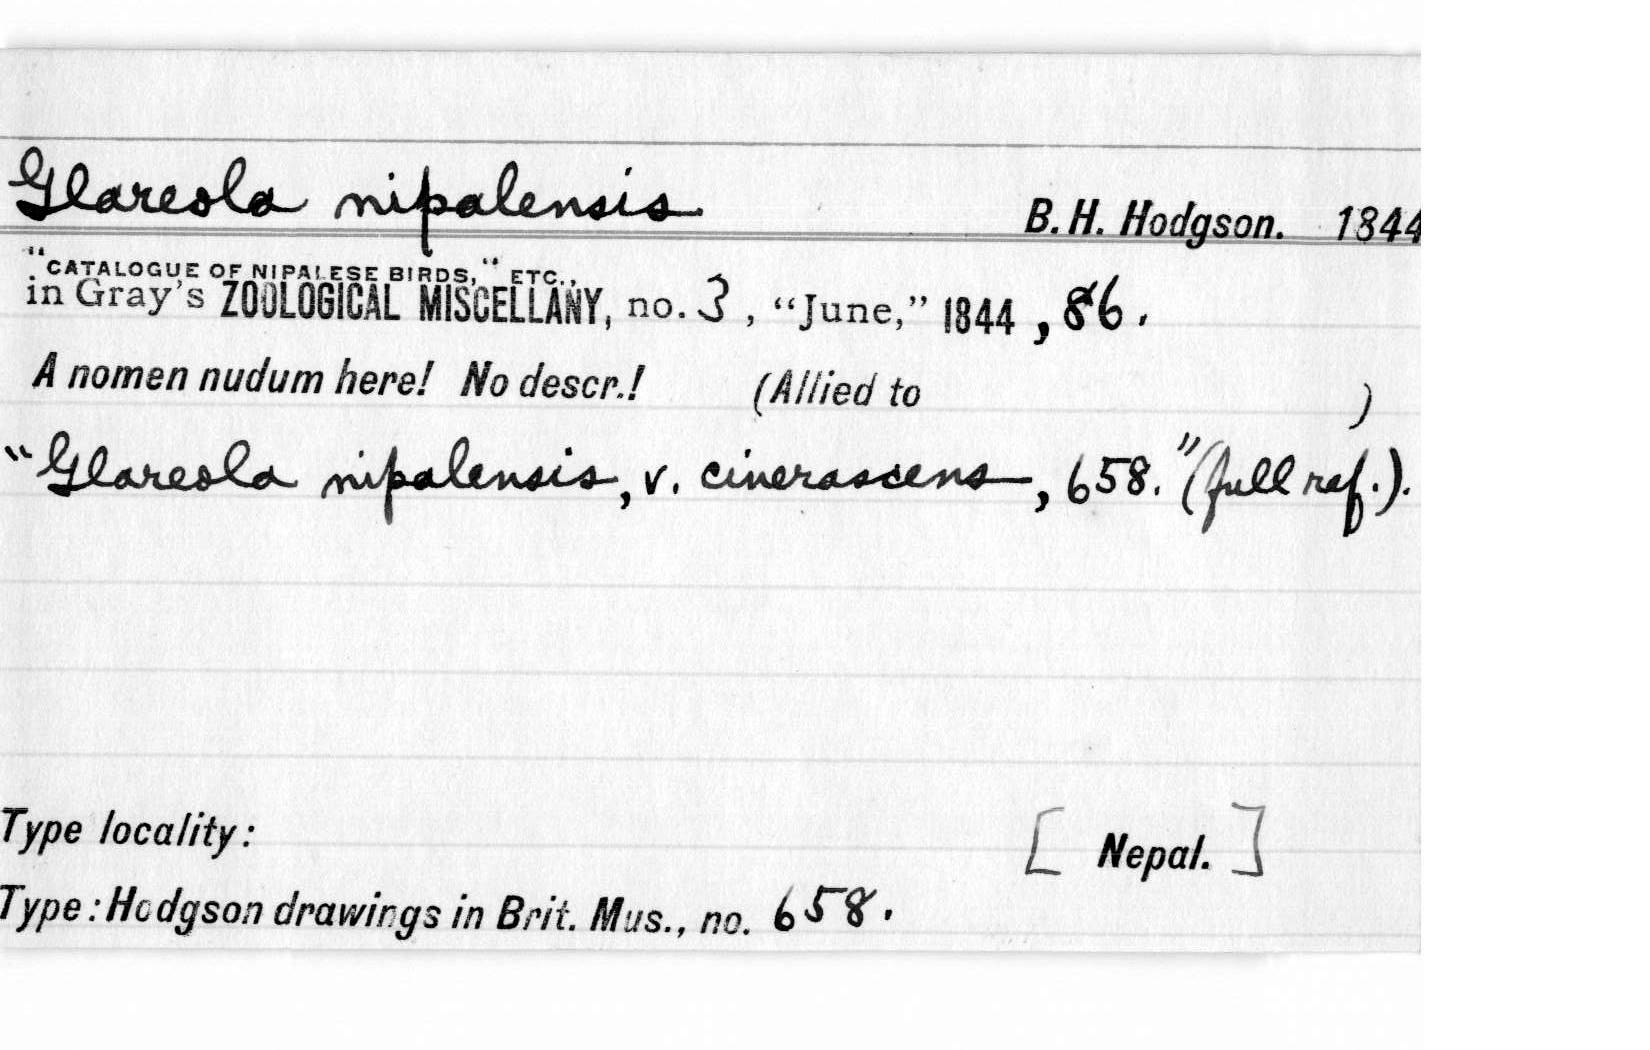 Glareola nipalensis B. H. Hodgson. 1844
"CATALOGUE OF NIPALESE BIRDS," ETC.,
in Gray's ZOOLOGICAL MISCELLANY, no. 3, "June," 1844, 86.
A nomen nudum here! No descr.! (Allied to )
"Glareola nipalensis, v. cinerascens, 658." (full ref.).
Type locality: [ Nepal. ]
Type: Hodgson drawings in Brit. Mus., no. 658.